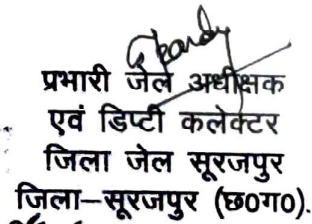 प्रभारी जेल अधीक्षक
एवं डिप्टी कलेक्टर
जिला जेल सूरजपुर
जिला–सूरजपुर (छ0ग0).